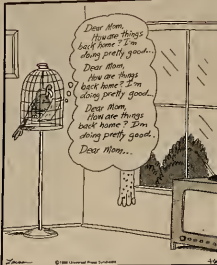 Dear Mom,
How are things
back home? I'm
doing pretty good...
Dear Mom,
How are things
back home? I'm
doing pretty good...
Dear Mom,
How are things
back home? I'm
doing pretty good.
Dear Mom...
Larson
© 1986 Universal Press Syndicate